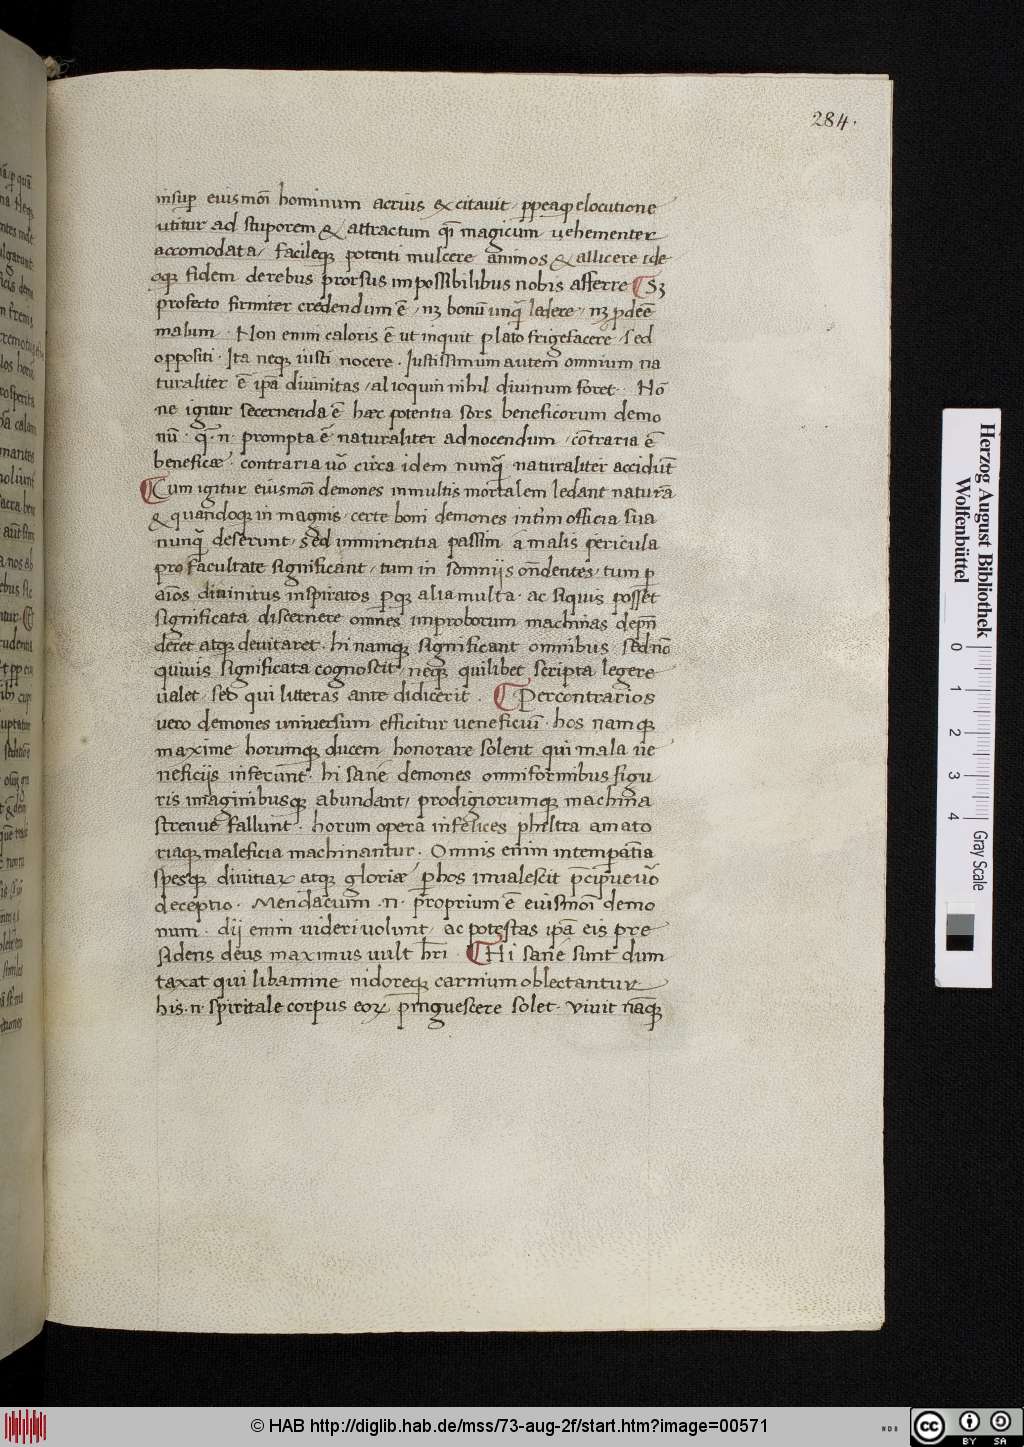 284.
insup̄ eiusmōi hominum acrius excitauit, ppeaq̃ elocutione
utitur ad stuporem & attractum q̄si magicum uehementer
accomodata, facileq̃ potenti mulcere animos & allicere ide
oq̃ fidem derebus prorsus impossibilibus nobis afferre ¶ Sꝫ
profecto firmiter credendum ē, nꝫ bonū unq̃ ledere, nꝫ pdēē
malum. Non enim caloris ē ut inquit plato frigefacere, sed
oppositi. Ita neq̃ iusti nocere. Iustissimum autem omnium na
turaliter ē ipā diuinitas, alioquin nihil diuinum foret. Nō
ne igitur secernenda ē haec potentia sors beneficorum demo
nū. q̄. n. prompta ē naturaliter adnocendum, cōntraria ē
beneficæ. contraria uō circa idem nunq̃ naturaliter accidūt
¶ Cum igitur eiusmōi demones inmultis mortalem ledant naturā
& quandoq̃ in magnis, certe boni demones intim officia sua
nunq̃ deserunt, sed imminentia passim a malis pericula
pro facultate significant, tum in somniis ōndentes, tum p
aīos diuinitus inspiratos pq̃ alia multa. ac siquis posset
significata discernere omnes improborum machinas depn̄
deret atq̃ deuitaret. hi namq̃ significant omnibus, sed nō
quiuis significata cognoscit, neq̃ quilibet scripta legere
ualet, sed qui litteras ante didicerit. ¶ Per contrarios
uero demones uniuersum efficitur ueneficiū. hos namq̃
maxime horumq̃ ducem honorare solent qui mala ue
neficijs inferunt. hi sane demones omniformibus figu
ris imaginibusq̃ abundant, prodigiorumq̃ machina
strenue fallunt. horum opera infelices philtra amato
riaq̃ maleficia machinantur. Omnis enim intemperātia
spesq̃ diuitiaꝝ atq̃ gloriæ p hos inualescit pcipueuō
deceptio. Mendacium .n. proprium ē eiusmōi demo
num. dij enim uideri uolunt, ac potestas ipā eis pre
sidens deus maximus uult h̄ri. ¶ Hi sane sunt dum
taxat qui libamine nidoreq̃ carnium oblectantur
his .n. spiritale corpus eoꝝ pinguescere solet. viuit nāq̃
Herzog August Bibliothek
Wolfenbüttel
0 1 2 3 4
Gray Scale
© HAB http://diglib.hab.de/mss/73-aug-2f/start.htm?image=00571
WDB
cc BY SA